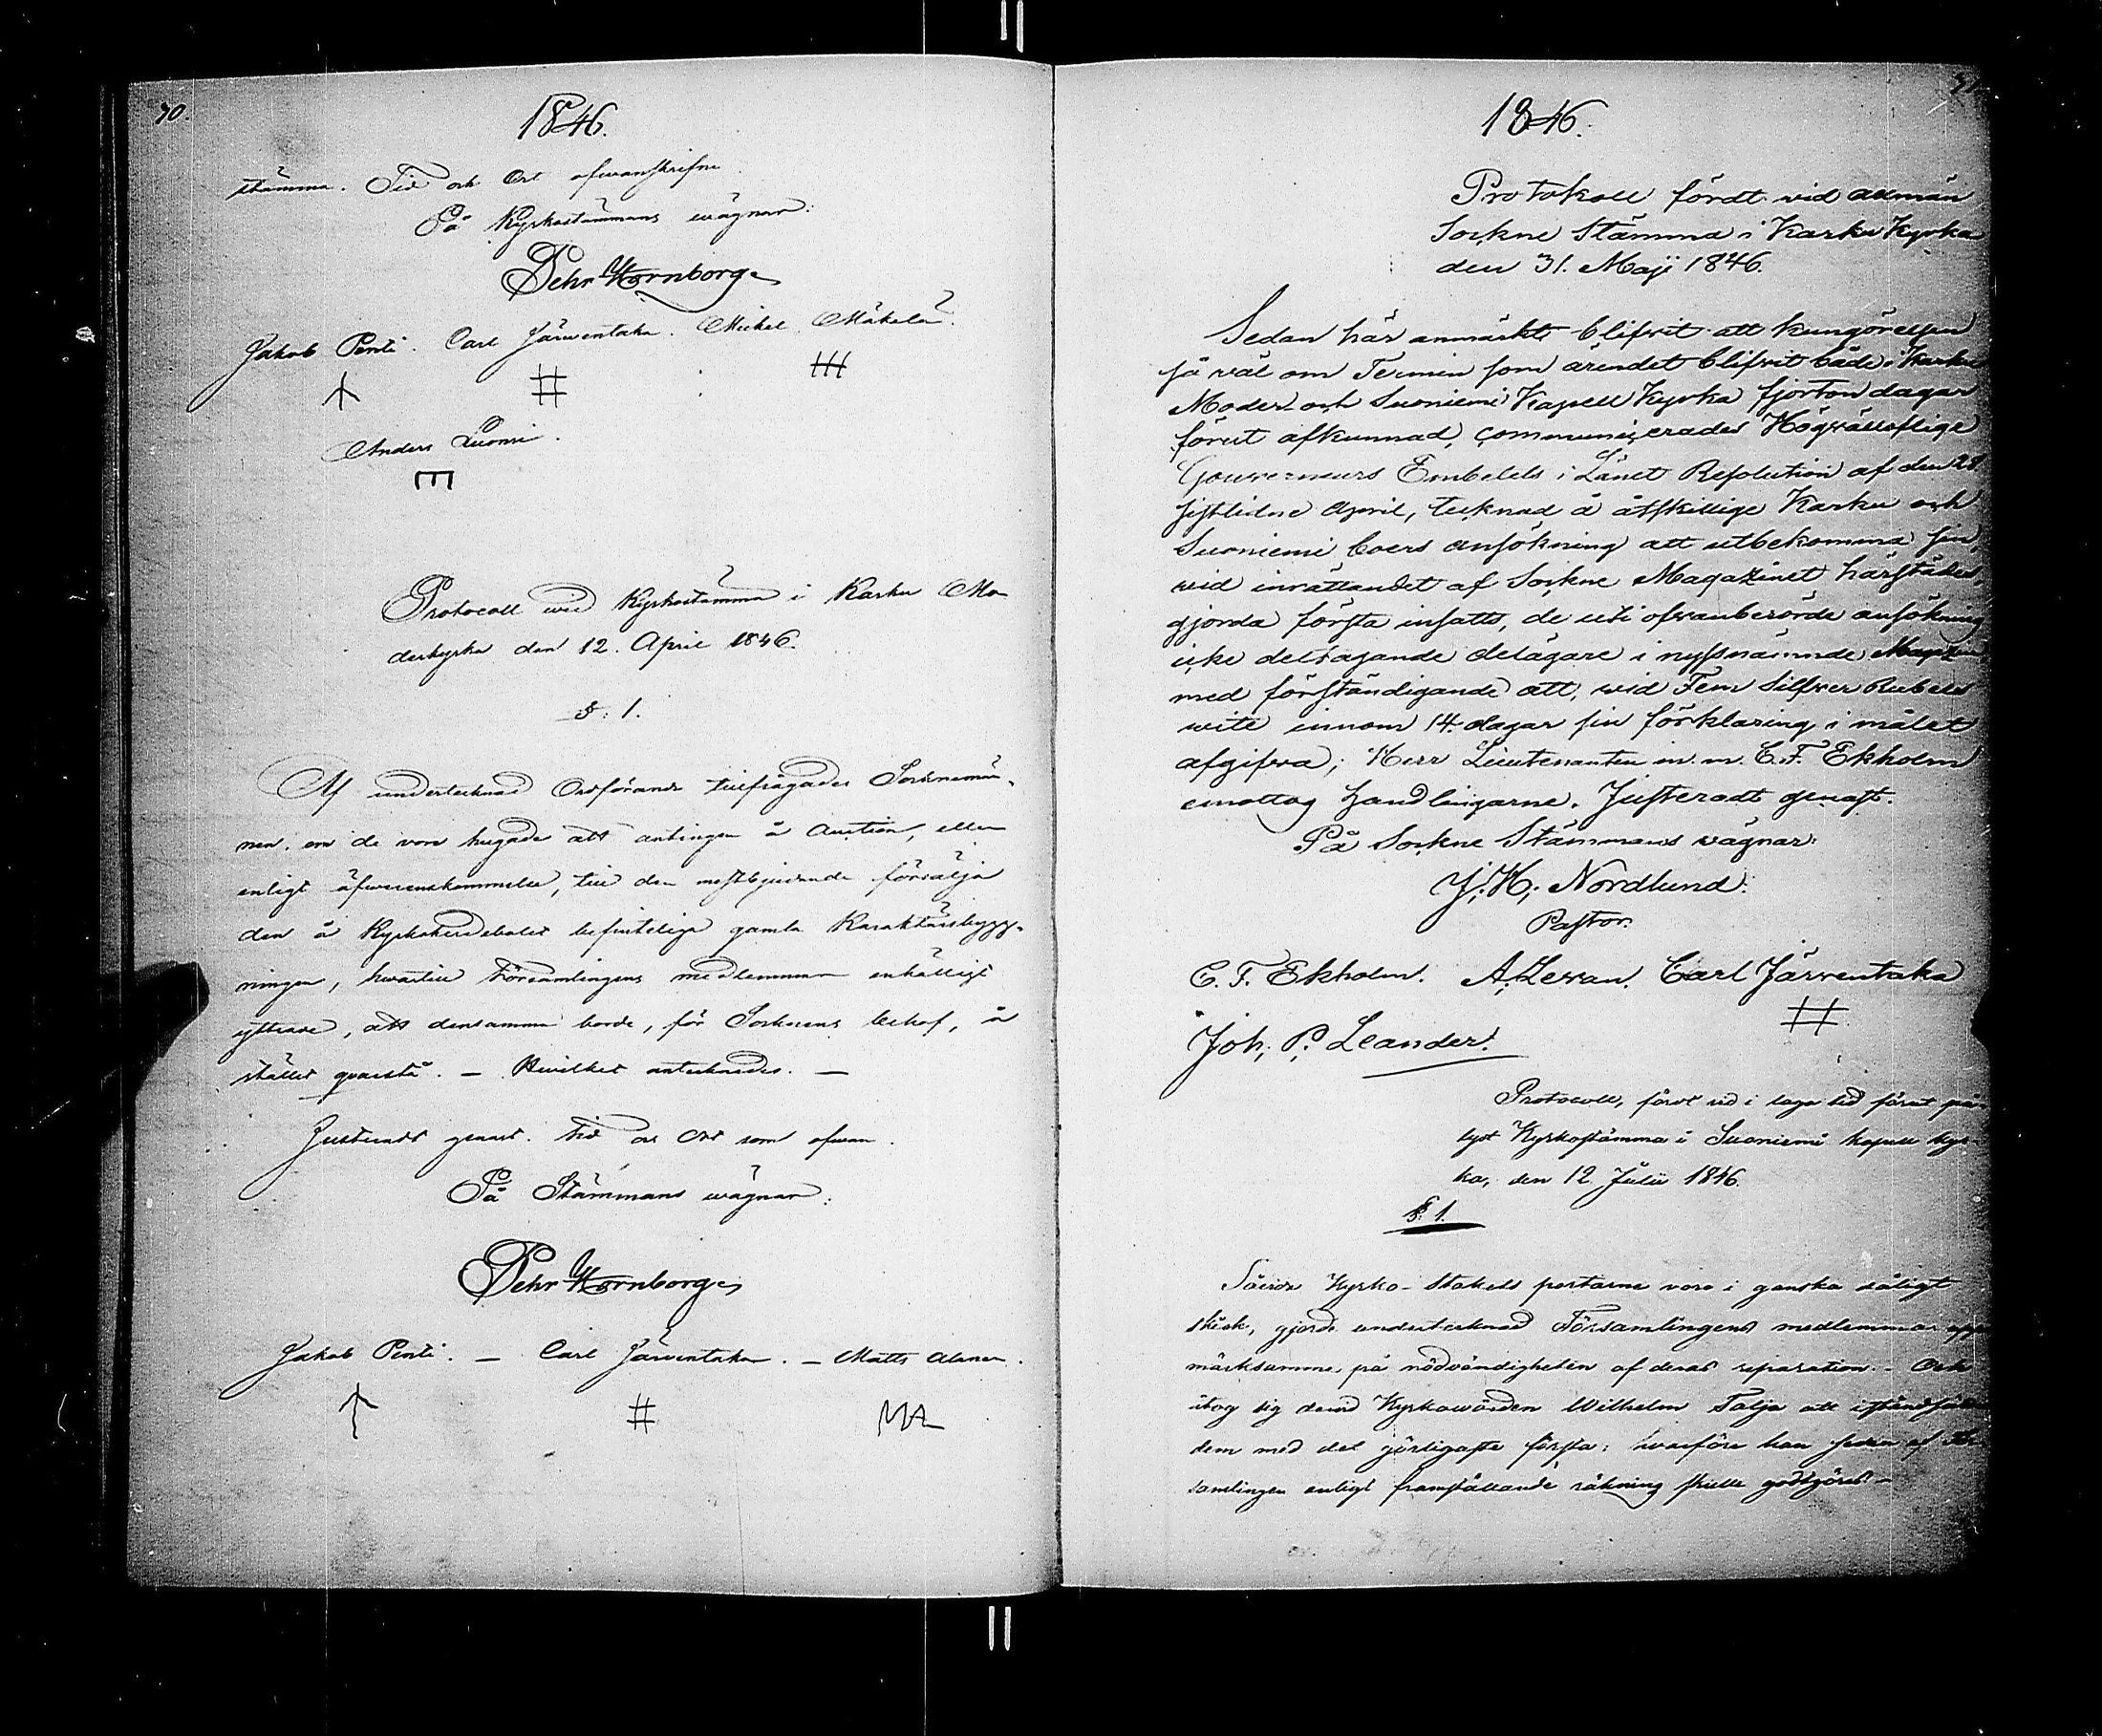 70.
1846.
stämma. Tid och Ort ofwanskrifne.
På Kyrkostämmans wägnar:
Pehr Hornborg
Jakob Penti. Carl Järwentaka. Mickel Mäkelä.
Anders Luomi.
Protocoll wid Kyrkostämma i Karku Mo-
derkyrka den 12. April 1846.
§: 1.
Af undertecknad Ordförande tillfrågades Socknemän-
nen, om de voro hugade att antingen å Auction, eller
enligt öfwerenskommelse, till den mestbjudande försälja
den å befinteliga gamla Karaktärsbygg-
ningen, hwartill Församlingens medlemmar enhälligt
yttrade, att densamma borde, för Socknens behof, å
stället qvarstå. — Hwilket antecknades. —
Justeradt genast. Tid och Ort som ofwan.
På Stämmans wägnar:
Pehr Hornborg
Jakob Penti. — Carl Järwentaka. — Matts
1846.
Protokoll fördt vid allmän
Sockne Stämma i Karku Kyrka
den 31. Maji 1846.
Sedan här anmärkt blifvit att kungörelsen
så väl om Termin som ärendet blifvit både i Karku
Moder- och Suoniemi Kapell Kyrka fjorton dagar
förut afkunnad, communicerades Högvällofliga
Gouverneurs Embetets i Länet Resolution af den 28.
sistlidne April, tecknad å åtskillige Karku och
Suoniemi boers ansökning att utbekomma sin,
wid inrättandet af Sockne Magazinet härstädes,
gjorda första insatts, de uti ofvanberörde ansökning
icke deltagande delägare i nyssnämnde Magazin
med förständigande att, vid Fem Silfver Rubels
wite innom 14. dagar sin förklaring i målet
afgifva; Herr Lieutenanten m. m. C. F. Ekholm
emottog handlingarne. Justeradt genast.
På Sockne Stämmans vägnar:
J. H. Nordlund.
Pastor.
C. F. Ekholm. A. Levan. Carl Järventaka
Joh. P. Leander.
Protocoll, fördt vid i laga tid förut på-
lyst Kyrkostämma i Suoniemi kapell kyr-
ka, den 12 Julii 1846.
§: 1.
Såsom Kyrko-Stakets portarne voro i ganska dåligt
skick, gjorde undertecknad Församlingens medlemmar upp-
märksamma på nödvändigheten af deras reparation. — Och
åtog sig dervid Kyrkowärden Wilhelm Talja att iståndsätta
dem med det görligaste första; hvarföre han sedan af För-
samlingen enligt framställande räkning skulle godtgöras. —